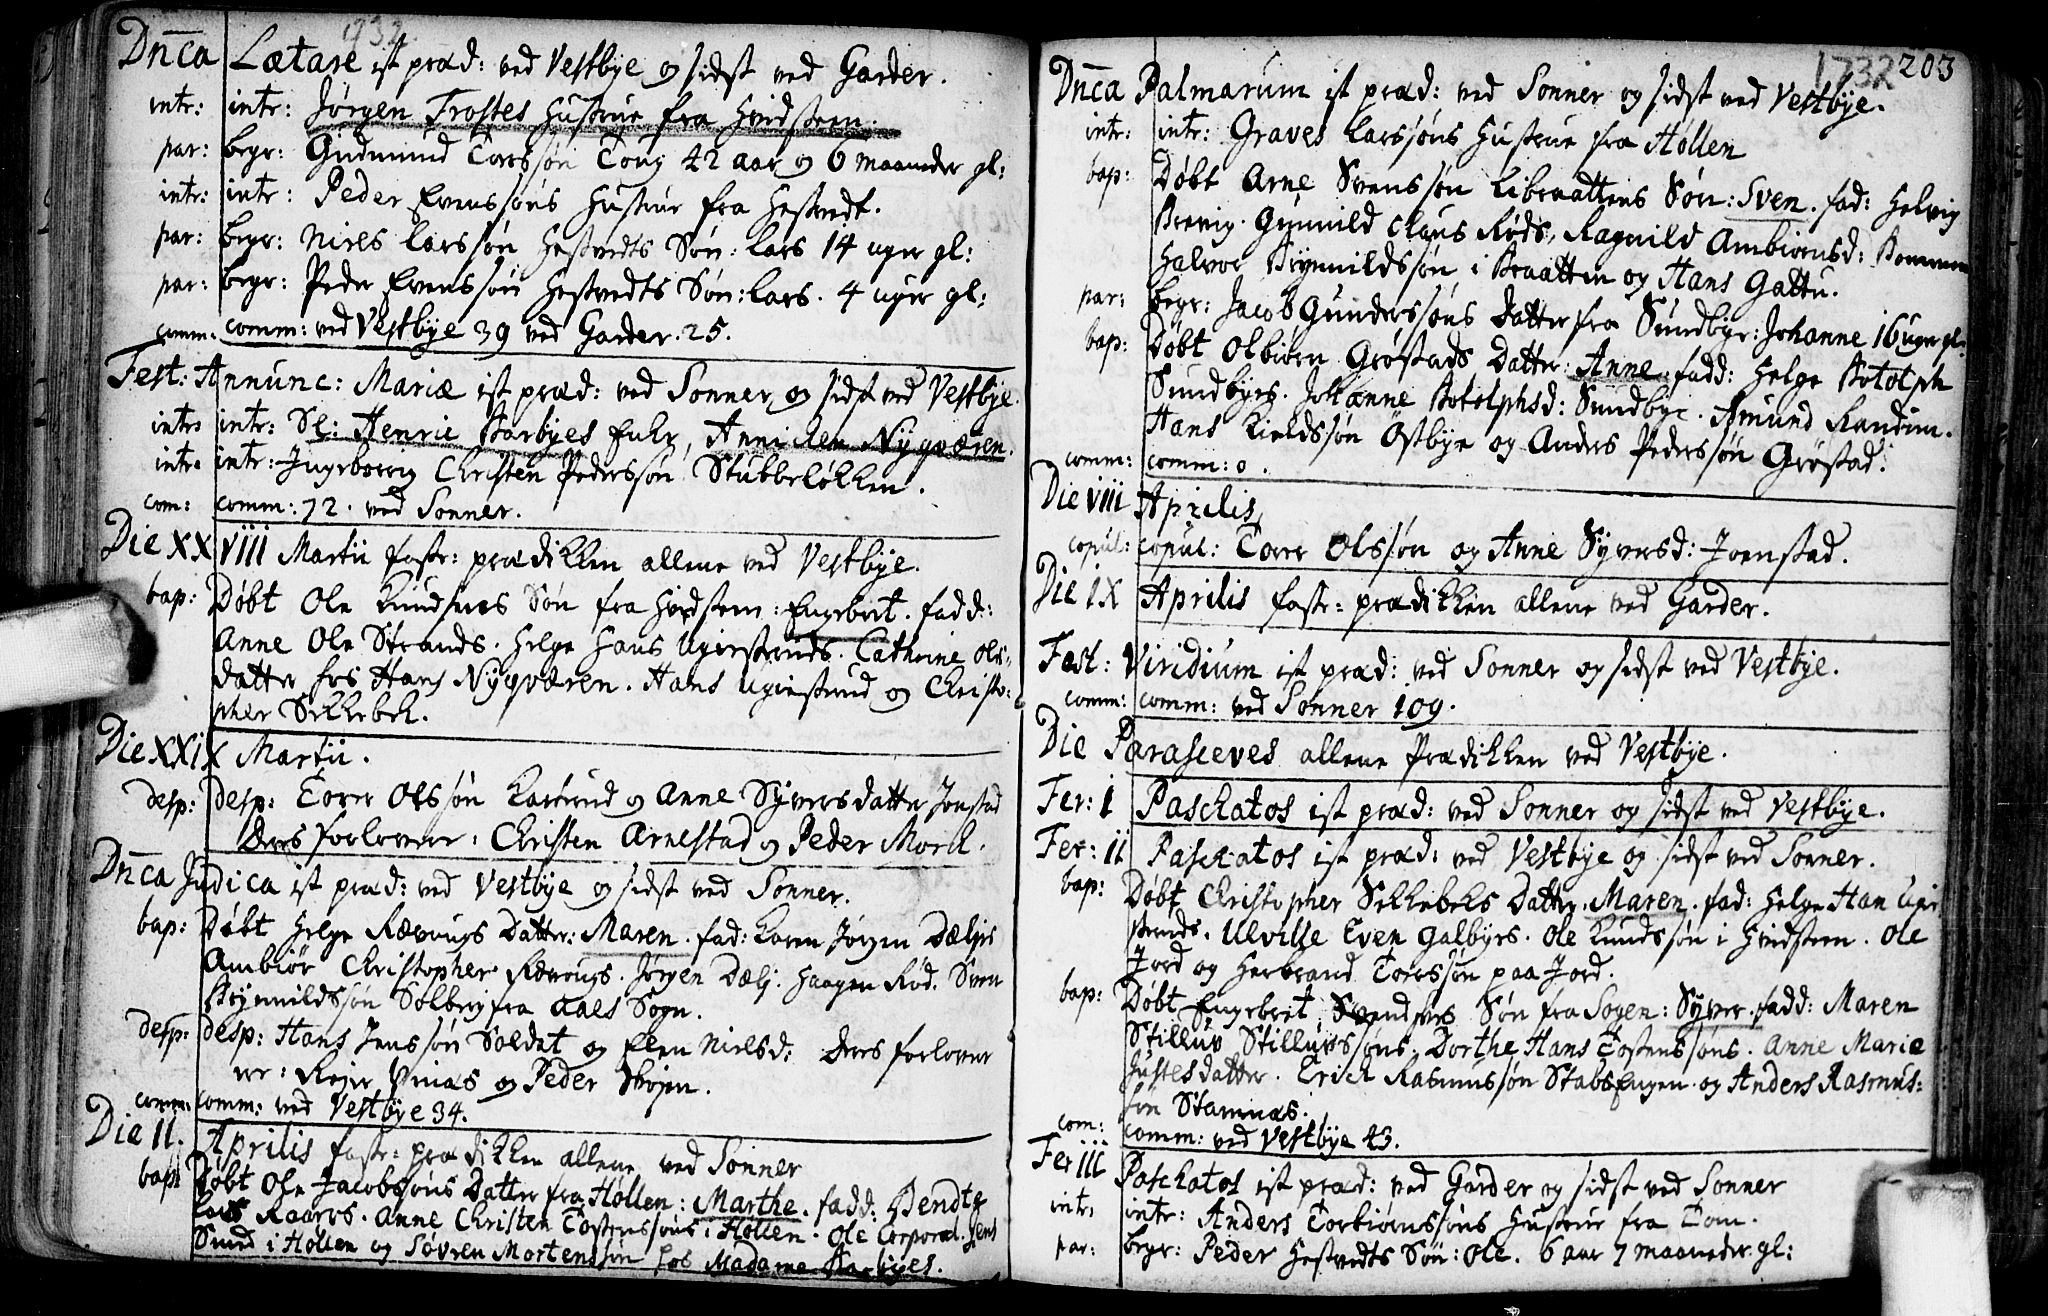 1732
Dnca Lætare ist præd: ved Vestbye og sidst ved Garder.
intr: intr: Jørgen Frostes Hustrue fra Hvidsteen.
par: begr: Gudmund Torssøn Toug 42 aar og 6 maaneder gl:
intr: intr: Peder Evenssøns Hustrue fra Hestvedt.
par: begr: Niels Larssøn Hestvedts Søn: Lars 14 uger gl:
par: begr: Peder Evenssøn Hestvedts Søn: Lars. 4 uger gl:
comm: comm: ved Vestbye 39 ved Garder. 25.
Fest: Annunc: Mariæ ist præd: ved Sonner og sidst ved Vestbye.
intr: intr: Sl: Henric Karbyes Enke, Annichen Nyqværen.
intr: intr: Ingeborrig Christen Pederssøn Stubbeløkken.
com: comm: 72. ved Sonner.
Die XXVIII Martii faste: prædikken allene ved Vestbye.
bap: Døbt Ole Knudsens Søn fra Hvidsteen: Engebret. fadd:
Anne Ole Strands. Helge Hans Ugerstruds. Cathrine Ols-
datter hos Hans Nyqværen. Hans Ugerstrud og Christo-
pher Sekkebek.
Die XXIX Martii.
desp: desp: Torer Olssøn Karlsrud og Anne Syversdatter Jonstad
Deres forlovere: Christen Arnestad og Peder Morck.
Dnca Judica ist præd: ved Vestbye og sidst ved Sonner.
bap: Døbt Helge Rævougs Datter: Maren. fad: Karen Jørgen Dæljes
Ambiør Christopher Rævougs. Jørgen Dælj. Haagen Rød. Sven
Brynnildssøn Solberg fra Aaes Sogn.
desp: desp: Hans Jenssøn Soldat og Elen Nielsd: Deres forlover
er: Rejer Vinæs og Peder Skojen.
comm: comm: ved Vestbye 34.
Die II. Aprilis faste: prædikken allene ved Sonner
bap: Døbt Ole Jacobssøns Datter fra Høllen: Marthe. fadd: Bendte
Lars Kaarrs. Anne Christen Tostenssøns i Høllen. Ole Corporal. Jens
Sund i Høllen og Søvren Mortenssøn hos Madame Karbyes.
1732 203
Dnca Palmarum ist præd: ved Sonner og sidst ved Vestbye.
intr: intr: Graves Larssøns Hustrue fra Høllen
bap: Døbt Arne Svenssøn Kibraattens Søn: Sven. fad: Helvig
Krevig. Gunnild Claus Røds, Ragnild Ambiørnsd:
Halvor Brynnildssøn i Braatten og Hans Gattu.
par: begr: Jacob Gunderssøns Datter fra Sundbye: Johanne 16 uger gl:
bap: Døbt Olbiørn Grøstads Datter: Anne. fadd: Helge Botolph
Sundbyes. Johanne Botolphsd: Sundbye. Amund Randem.
Hans Kieldssøn Østbye og Anders Pederssøn Grøstad.
comm: comm: 0.
Die VIII Aprilis
copul: copul: Torer Olssøn og Anne Syversd: Joenstad.
Die IX Aprilis faste: prædikken allene ved Garder.
Fest: Viridium ist præd: ved Sonner og sidst ved Vestbye.
comm: comm: ved Sonner 109.
Die Parasceves allene Prædikken ved Vestbye.
Fer: I Paschatos ist præd: ved Sonner og sidst ved Vestbye.
Fer: II Paschatos ist præd: ved Vestbye og sidst ved Sonner.
bap: Døbt Christopher Sekkebeks Datter: Maren. fad: Helge Hans Uger
struds. Ulville Even Galbyes. Ole Knudssøn i Hvidsteen. Ole
Jord og Herbrand Torssøn paa Jord.
bap: Døbt Engebret Søn fra Sogen: Syver. fadd: Maren
Stilluv Stillufssøns. Dorthe Hans Tostenssøns. Anne Marie
Justesdatter. Erick Rasmussøn Stabsengen og Anders Rasmus-
søn Stamnæs.
com: comm: ved Vestbye 43.
Fer III Paschatos ist præd: ved Garder og sidst ved Sonner
intr: intr: Anders Torbiørnssøns Hustrue fra Tom.
par: begr: Peder Hestvedts Søn: Ole. 6 aar 7 maaneder gl: